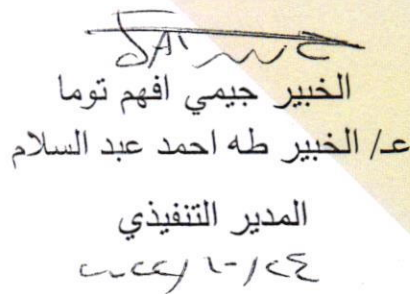 الخبير جيمي افهم توما
عـ/ الخبير طه احمد عبد السلام
المدير التنفيذي